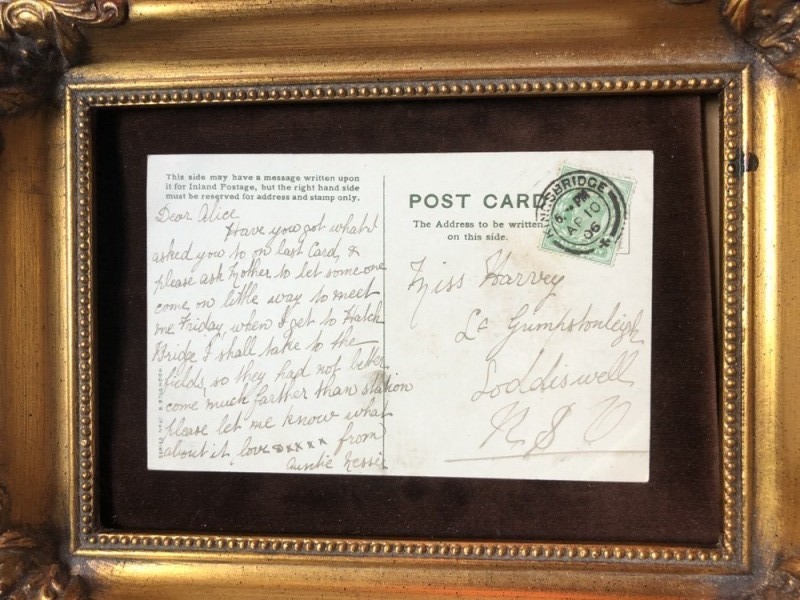 This side may have a message written upon
it for Inland Postage, but the right hand side
must be reserved for address and stamp only.
Dear Alice
Have you got what I
asked you to on last Card, &
please ask Mother to let someone
come on little way to meet
me Friday, when I get to Hatch
Bridge I shall take to the
fields, so they had not better
come much farther than station
Please let me know what
about it love xxxxx from
Auntie Nessie
POST CARD
The Address to be written
on this side.
KINGSBRIDGE
6. PM
AP 10
06
Miss Harvey
Lr Grimpstonleigh
Loddiswell